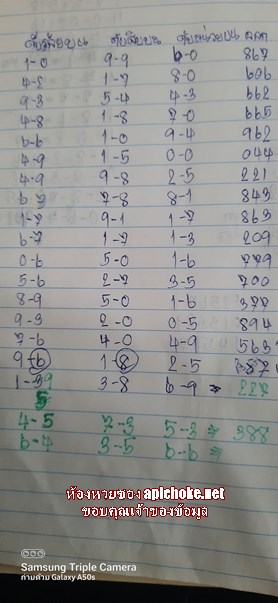 9-9 6-0 867
1-7 8-0 606
9-3 5-4 4-3 662
4-8 1-8 7-0 665
6-6 1-0 9-4 962
4-9 1-5 0-0 044
4-9 9-8 2-5 221
7-8 8-1 843
1-7 9-1 1-7 863
6-7 1-7 1-3 209
0-6 5-0 1-6 779
5-6 2-7 3-5 700
8-9 5-0 1-6 377
9-3 2-0 0-5 894
7-6 4-0 4-9 563
9-6 1-8 2-5 787
3-8 6-9 ⇒ 227
5
4-5 7-3 5-3 ⇒ 388
6-4 3-5 6-6 ⇒
ห้องหวยของapichoke.net
ขอบคุณเจ้าของข้อมูล
Samsung Triple Camera
ถ่ายด้วย Galaxy A50s